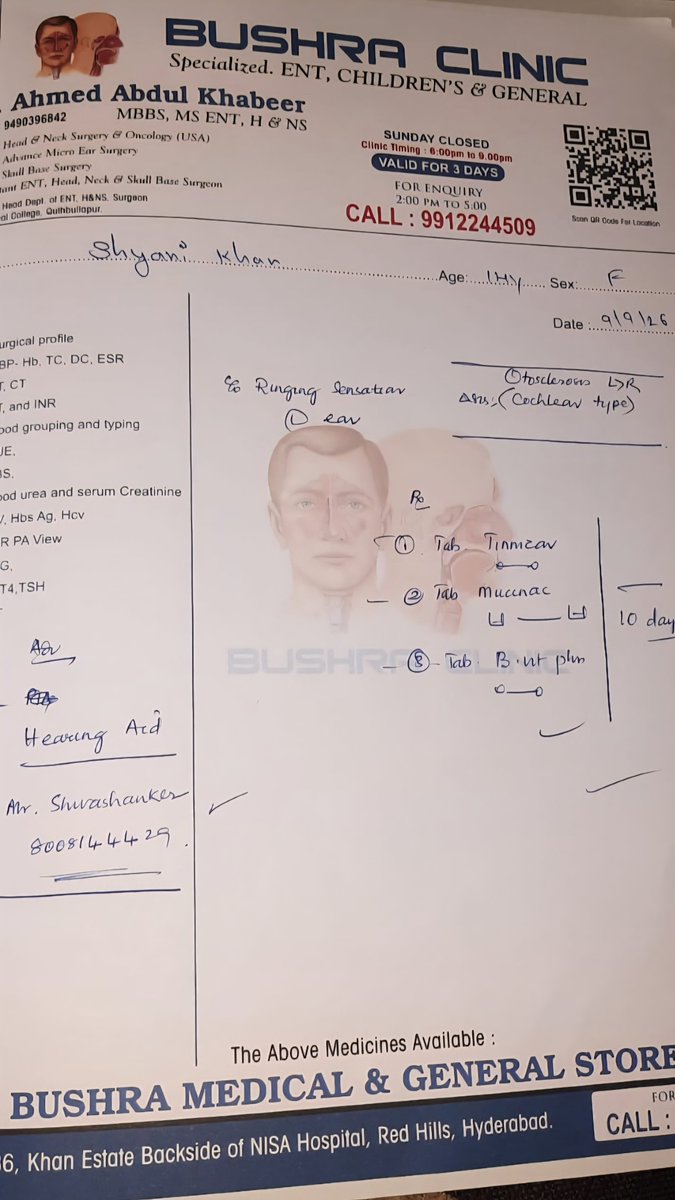 BUSHRA CLINIC
Specialized. ENT, CHILDREN'S & GENERAL
. Ahmed Abdul Khabeer
9490396842
MBBS, MS ENT, H & NS
Head & Neck Surgery & Oncology (USA)
Advance Micro Ear Surgery
Skull Base Surgery
tant ENT, Head, Neck & Skull Base Surgeon
Head Dept. of ENT, H&NS. Surgeon
al College, Quthbullapur.
SUNDAY CLOSED
Clinic Timing : 6:00pm to 9.00pm
VALID FOR 3 DAYS
FOR ENQUIRY
2:00 PM TO 5:00
CALL : 9912244509
Scan QR Code For Location
Shyani Khan
Age: Sex: F
Date : 9/9/26
urgical profile
BP- Hb, TC, DC, ESR
T, CT
T, and INR
ood grouping and typing
UE.
BS.
ood urea and serum Creatinine
V, Hbs Ag, Hcv
R PA View
G,
T4,TSH
c/o Ringing Sensation
ear
Otosclerosis L>R
(Cochlear type)
Rx
① Tab Tinnizav
② Tab Mucinac
③ Tab B.nt plus
10 day
BUSHRA CLINIC
Adv
Hearing Aid
Mr. Shivashanker
8008144429
The Above Medicines Available :
BUSHRA MEDICAL & GENERAL STORE
36, Khan Estate Backside of NISA Hospital, Red Hills, Hyderabad.
FOR
CALL :